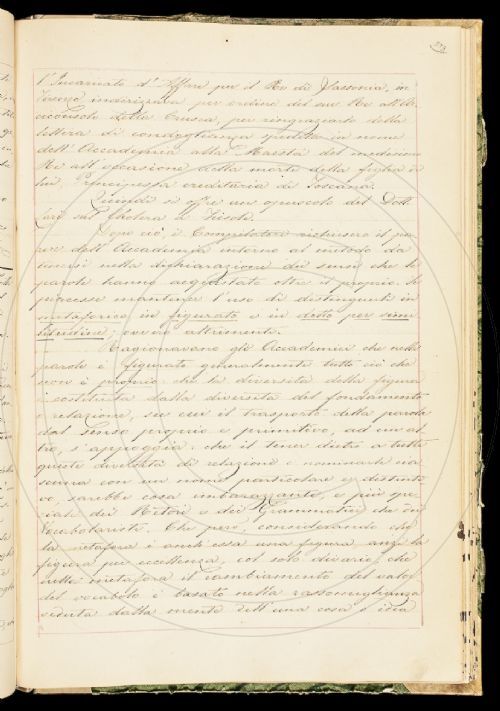 l'Incaricato d'Affari per il Re di Sassonia, in
Firenze indirizzava per ordine del suo Re all'Ac-
cademia della Crusca, per ringraziarla della
lettera di condoglianza spedita in nome
dell'Accademia alla Maestà del medesimo
Re all'occasione della morte della figlia di
lui, Principessa ereditaria di Toscana.
Quindi si offre un opuscolo del Dott.
sul Cholera di Fiesole.
Dopo ciò, i Compilatori richiesero il pa-
rere dell'Accademia intorno al metodo da
tenersi nella dichiarazione dei sensi che le
parole hanno acquistato oltre il proprio. Se
piacesse mantener l'uso di distinguerli in
metaforico in figurato e in detto per simi-
litudine; ovvero altrimenti.
Ragionavano gli Accademici che nelle
parole è figurato generalmente tutto ciò che
non è proprio: che la diversità della figura
è costituita dalla diversità del fondamento
e relazione, su cui il trasporto della parola
dal senso proprio e primitivo, ad un al-
tro, s'appoggia: che il tener dietro a tutte
queste diversità di relazione e nominarle cia-
scuna con un nome particolare e distinto
ivo, sarebbe cosa imbarazzante, e più spe-
ciale dei Retori e dei Grammatici che dei
Vocabolaristi. Che però, considerando che
la metafora è anch'essa una figura, anzi la
figura per eccellenza, col solo divario, che
nella metafora il cambiamento del valor
del vocabolo è basato nella rassomiglianza
veduta dalla mente dell'una cosa o idea